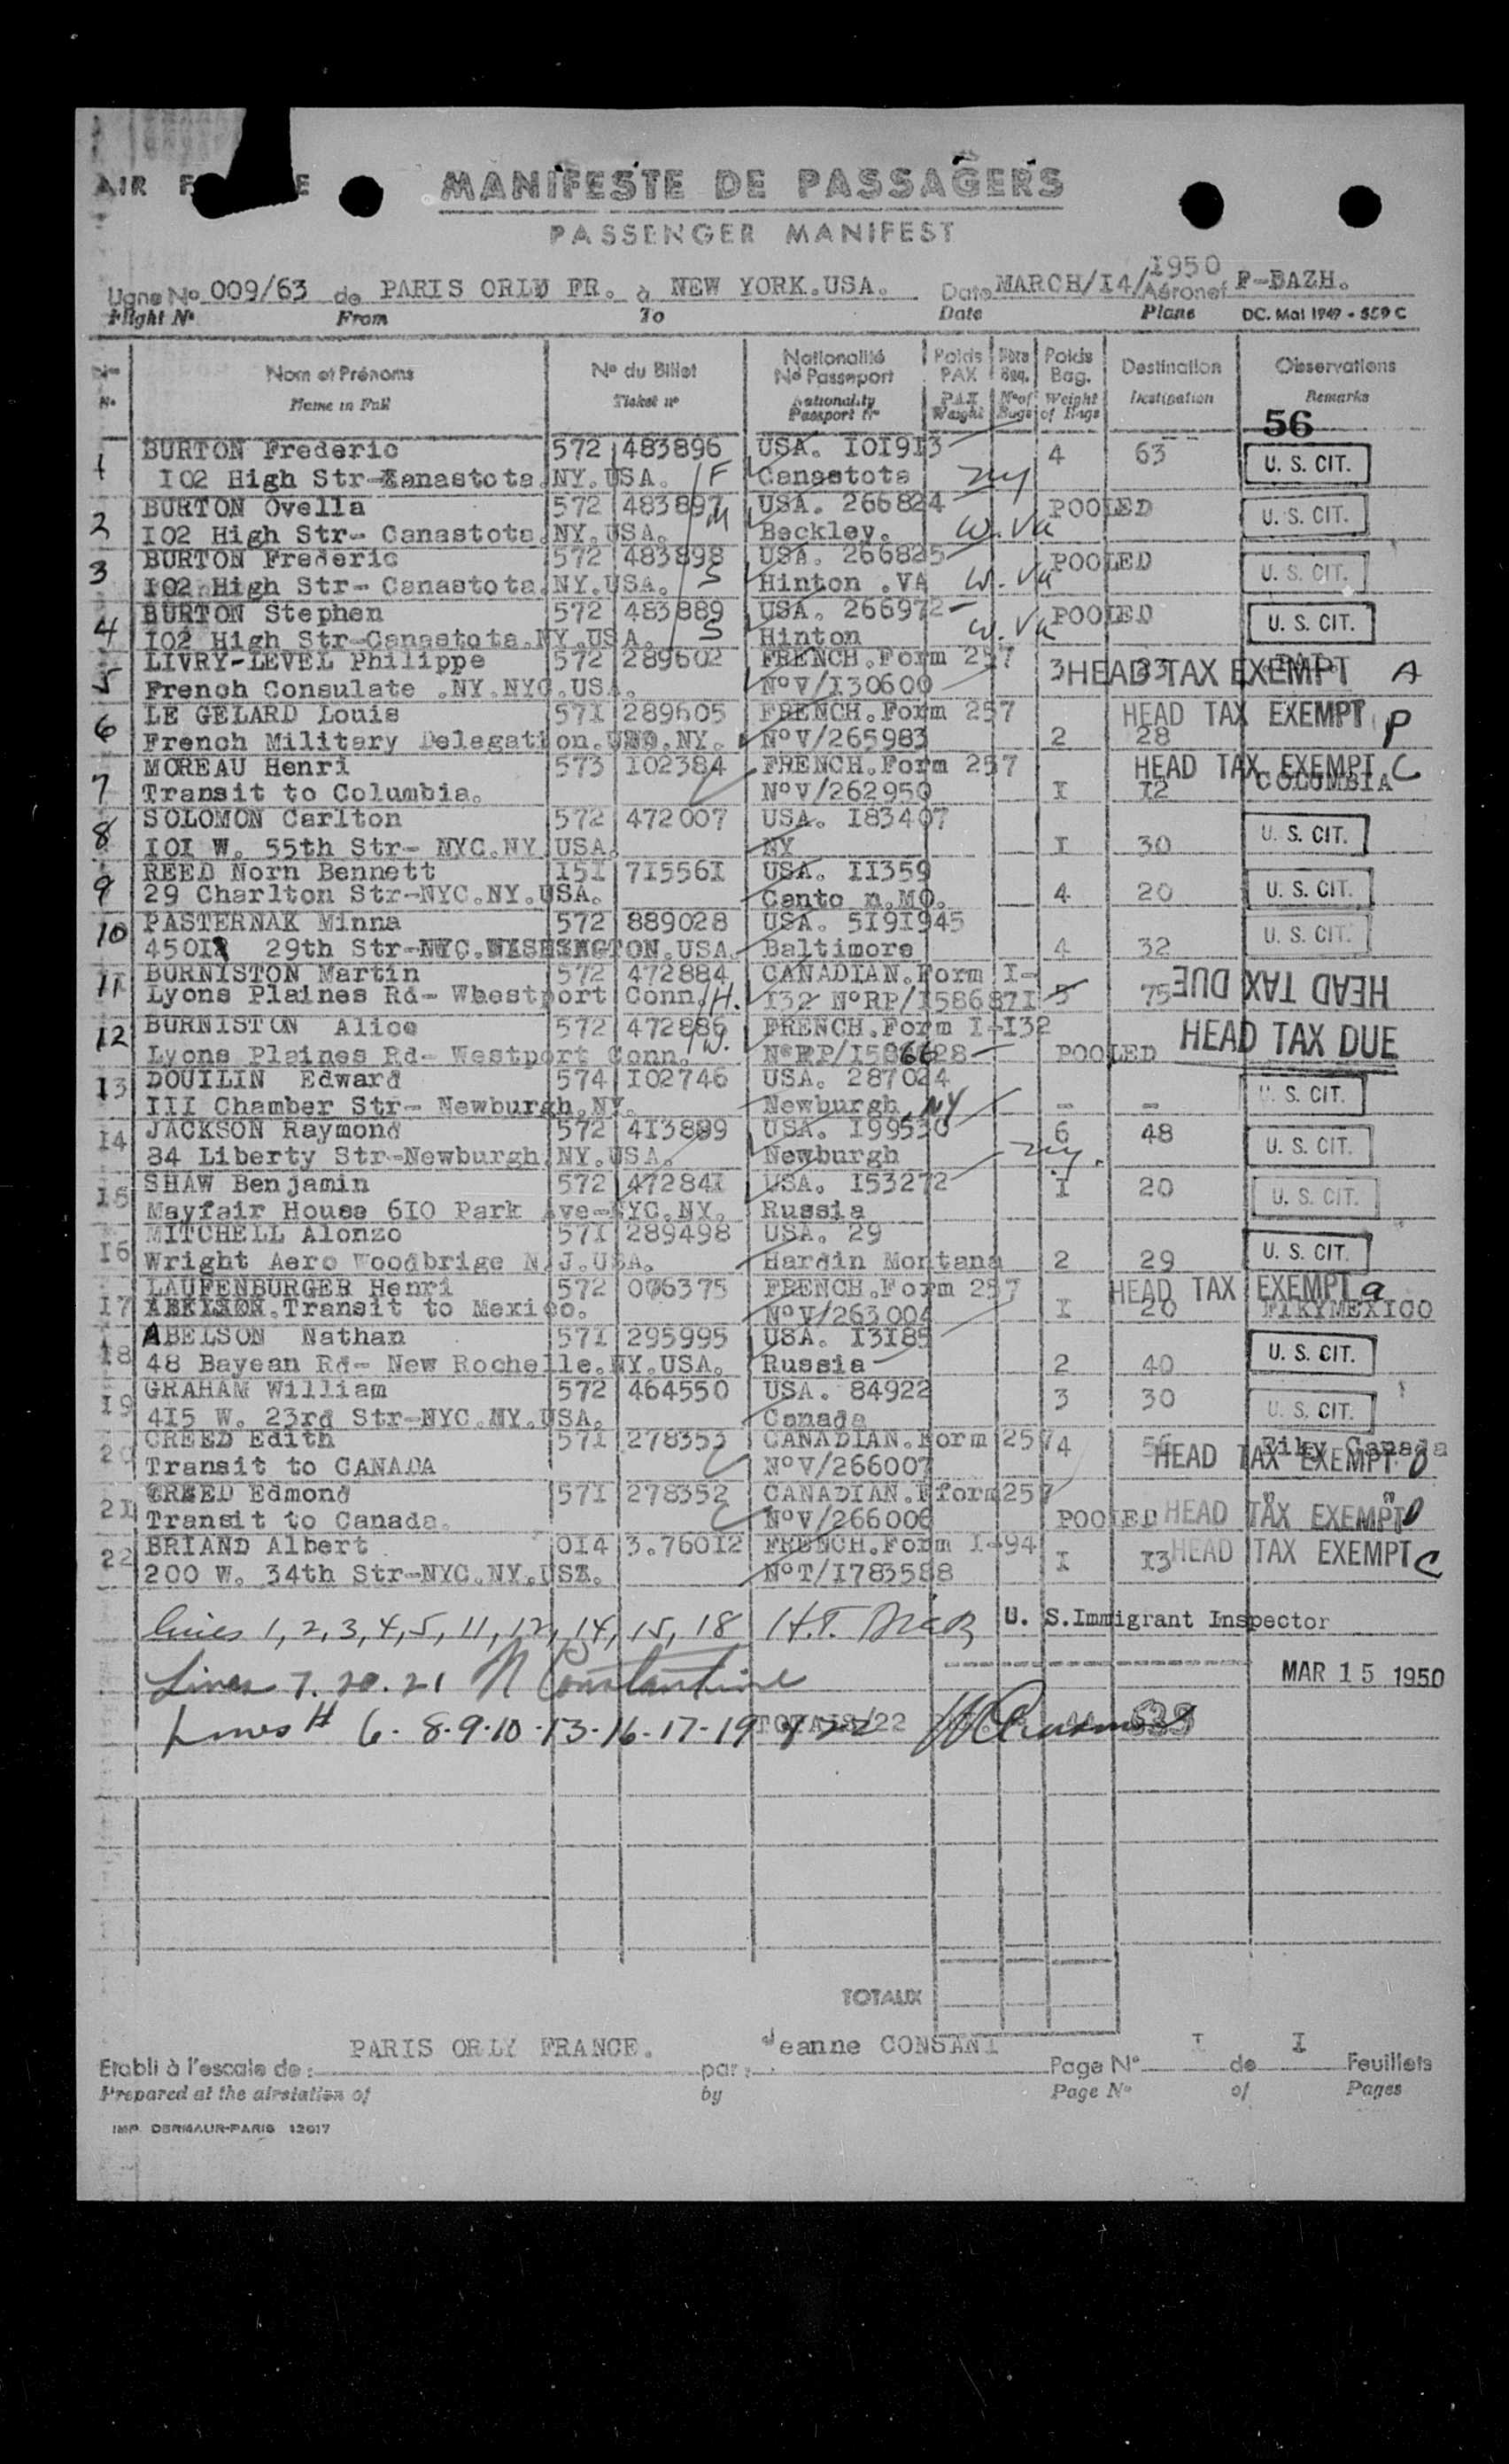 AIR F E MANIFESTE DE PASSAGERS
PASSENGER MANIFEST
Ligne No 009/63 de PARIS ORLY FR. à NEW YORK.USA. Date MARCH/I4/1950 Aéronef F-BAZH.
Flight No From To Date Plane DC. Mai 1949 - 559 C
No Nom et Prénoms No du Billet Nationalité No Passeport Poids PAX Nbre Bag. Poids Bag. Destination Observations
N. Name in Full Ticket no Nationality Passport no PAX Weight No of Bags Weight of Bags Destination Remarks
56
1 BURTON Frederic 572 483896 USA. I0I913 4 63 U. S. CIT.
I02 High Str-Canastota.NY.USA. F Canastota NY
2 BURTON Ovella 572 483897 USA. 266824 POOLED U. S. CIT.
I02 High Str- Canastota.NY.USA. M Beckley. W. Va
3 BURTON Frederic 572 483898 USA. 266825 POOLED U. S. CIT.
I02 High Str- Canastota.NY.USA. S Hinton .VA W. Va
4 BURTON Stephen 572 483889 USA. 266972 POOLED U. S. CIT.
I02 High Str-Canastota.NY.USA. S Hinton W. Va
5 LIVRY-LEVEL Philippe 572 289602 FRENCH.Form 257 3 33 HEAD TAX EXEMPT A
French Consulate .NY.NYC.USA. NoV/I30600
6 LE GELARD Louis 57I 289605 FRENCH.Form 257 HEAD TAX EXEMPT P
French Military Delegation. NY. NoV/265983 2 28
7 MOREAU Henri 573 I02384 FRENCH.Form 257 HEAD TAX EXEMPT C
Transit to Columbia. NoV/262950 I I2 COLUMBIA
8 SOLOMON Carlton 572 472007 USA. I83407 U. S. CIT.
I0I W. 55th Str- NYC.NY.USA. NY I 30
9 REED Norn Bennett I5I 7I556I USA. II359 U. S. CIT.
29 Charlton Str-NYC.NY.USA. Canto n.MO. 4 20
10 PASTERNAK Minna 572 889028 USA. 5I9I945 U. S. CIT.
450I 29th Str- WASHINGTON.USA. Baltimore 4 32
11 BURNISTON Martin 572 472884 CANADIAN.Form I- HEAD TAX DUE
Lyons Plaines Rd- Whestport Conn. H. I32 NoRP/I58687I 5 75
12 BURNISTON Alice 572 472886 FRENCH.Form I-I32 HEAD TAX DUE
Lyons Plaines Rd- Westport Conn. W. NoRP/I586628 POOLED
13 DOUILIN Edward 574 I02746 USA. 287024 U. S. CIT.
III Chamber Str- Newburgh.NY. Newburgh NY - -
I4 JACKSON Raymond 572 4I3899 USA. I99530 6 48 U. S. CIT.
84 Liberty Str-Newburgh.NY.USA. Newburgh NY.
I5 SHAW Benjamin 572 47284I USA. I53272 I 20 U. S. CIT.
Mayfair House 6I0 Park Ave-NYC.NY. Russia
I6 MITCHELL Alonzo 57I 289498 USA. 29 U. S. CIT.
Wright Aero Woodbrige N.J.USA. Hardin Montana 2 29
I7 LAUFENBURGER Henri 572 006375 FRENCH.Form 257 HEAD TAX EXEMPT a
Transit to Mexico. NoV/263004 I 20 MEXICO
I8 ABELSON Nathan 57I 295995 USA. I3I85 U. S. CIT.
48 Bayean Rd- New Rochelle.NY.USA. Russia 2 40
I9 GRAHAM William 572 464550 USA. 84922 3 30 U. S. CIT.
4I5 W. 23rd Str-NYC.NY.USA. Canada
20 CREED Edith 57I 278353 CANADIAN.Form 257 4 Canada
Transit to CANADA NoV/266007 HEAD TAX EXEMPT D
2I CREED Edmond 57I 278352 CANADIAN.Fform257
Transit to Canada. NoV/266006 POOLED HEAD TAX EXEMPT D
22 BRIAND Albert 0I4 3.760I2 FRENCH.Form I-94 I I3 HEAD TAX EXEMPT C
200 W. 34th Str-NYC.NY.USA. NoT/I783588
Lines 1,2,3,4,5,11,12,14,15,18 H.T. U. S.Immigrant Inspector
Lines 7. 20. 21 N Constantine MAR 15 1950
Lines # 6-8-9-10-13-16-17-19 & 22 TOTAIS/22 639
TOTAUX
Etabli à l'escale de: PARIS ORLY FRANCE. par: Jeanne CONSANI Page No I de I Feuillets
Prepared at the airstation of by Page No of Pages
IMP. DERMAUR-PARIS 12617